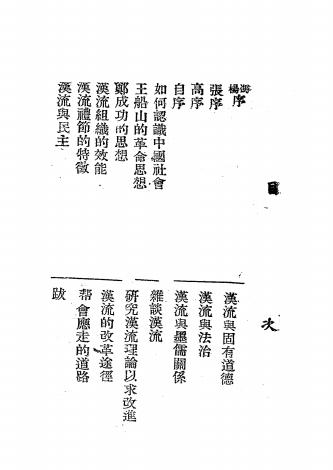 目次
楊序
張序
高序
自序
如何認識中國社會
王船山的革命思想
鄭成功的思想
漢流組織的效能
漢流禮節的特徵
漢流與民主
漢流與固有道德
漢流與法治
漢流與墨儒關係
雜談漢流
研究漢流理論以求改進
漢流的改革途徑
帮會應走的道路
跋